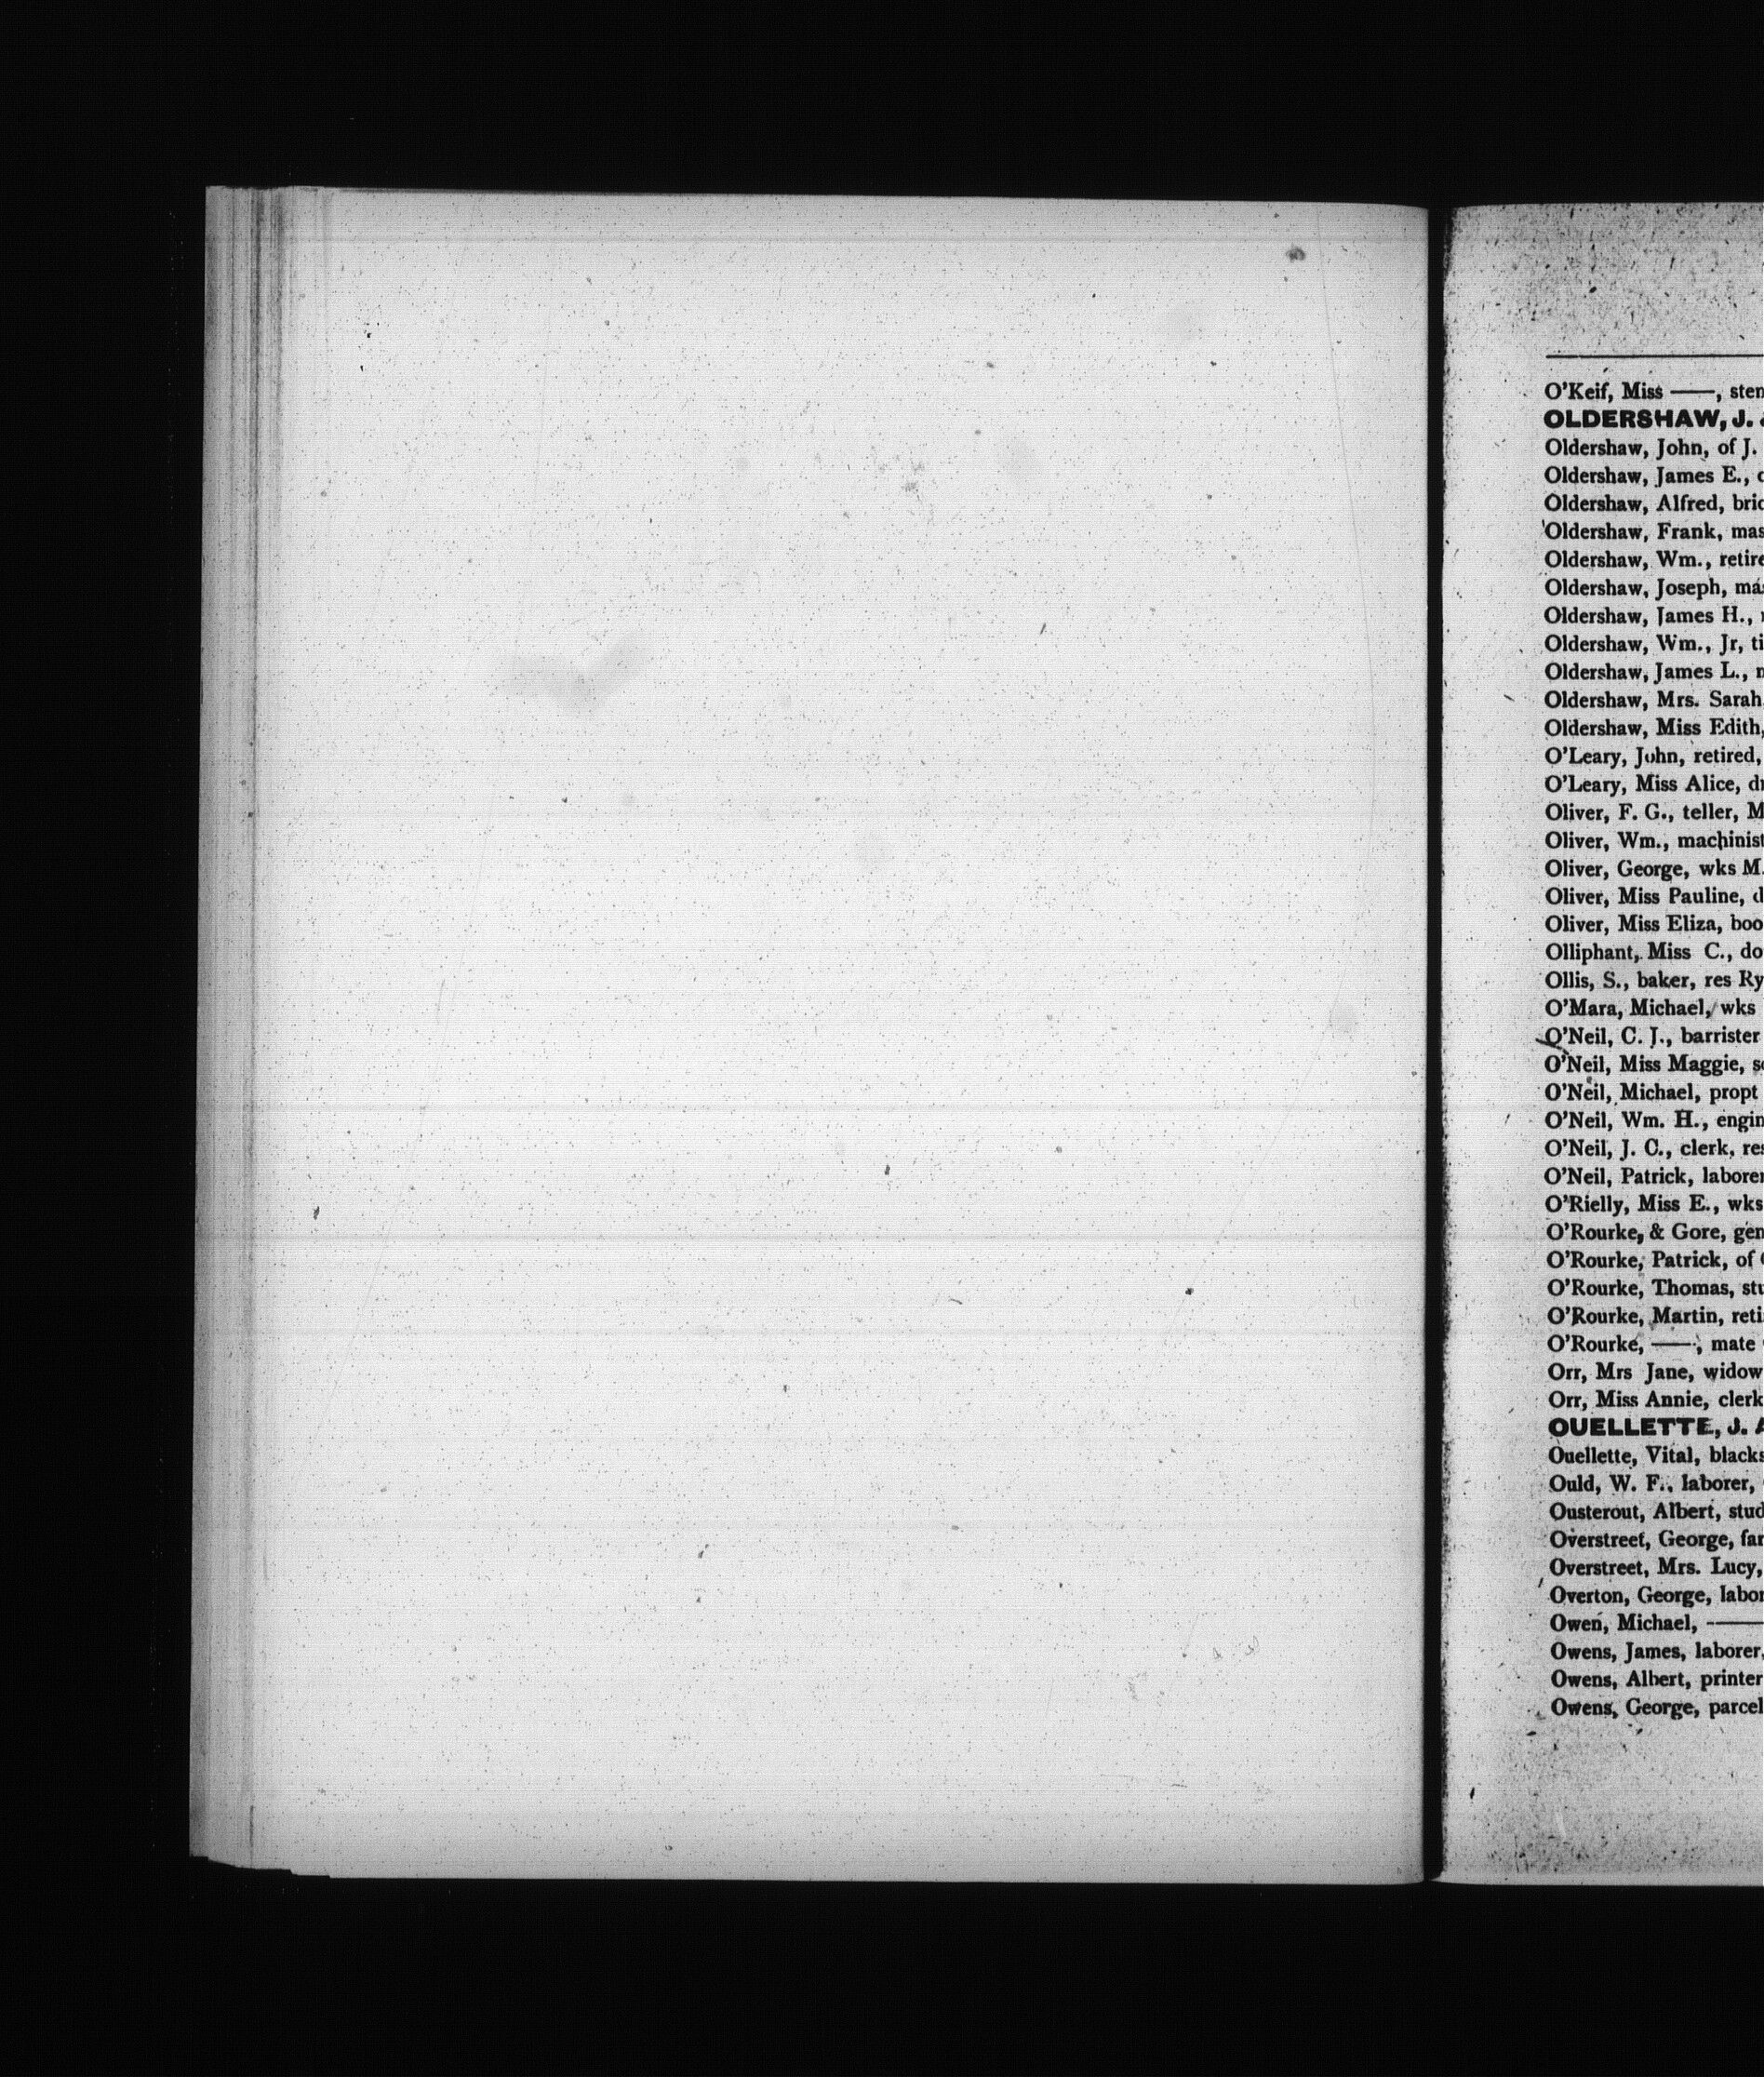 O'Keif, Miss ——, sten
OLDERSHAW, J. &
Oldershaw, John, of J.
Oldershaw, James E., c
Oldershaw, Alfred, bric
Oldershaw, Frank, mas
Oldershaw, Wm., retire
Oldershaw, Joseph, mas
Oldershaw, James H.,
Oldershaw, Wm., Jr, ti
Oldershaw, James L., m
Oldershaw, Mrs. Sarah,
Oldershaw, Miss Edith,
O'Leary, John, retired,
O'Leary, Miss Alice, dr
Oliver, F. G., teller, M
Oliver, Wm., machinist
Oliver, George, wks M.
Oliver, Miss Pauline, d
Oliver, Miss Eliza, boo
Olliphant, Miss C., do
Ollis, S., baker, res Ry
O'Mara, Michael, wks
O'Neil, C. J., barrister
O'Neil, Miss Maggie, se
O'Neil, Michael, propt
O'Neil, Wm. H., engin
O'Neil, J. C., clerk, res
O'Neil, Patrick, laborer
O'Rielly, Miss E., wks
O'Rourke, & Gore, gen
O'Rourke, Patrick, of
O'Rourke, Thomas, stu
O'Rourke, Martin, reti
O'Rourke, ——, mate
Orr, Mrs Jane, widow
Orr, Miss Annie, clerk
OUELLETTE, J. A
Ouellette, Vital, blacks
Ould, W. F., laborer,
Ousterout, Albert, stud
Overstreet, George, far
Overstreet, Mrs. Lucy,
Overton, George, labor
Owen, Michael, ——
Owens, James, laborer,
Owens, Albert, printer
Owens, George, parcel